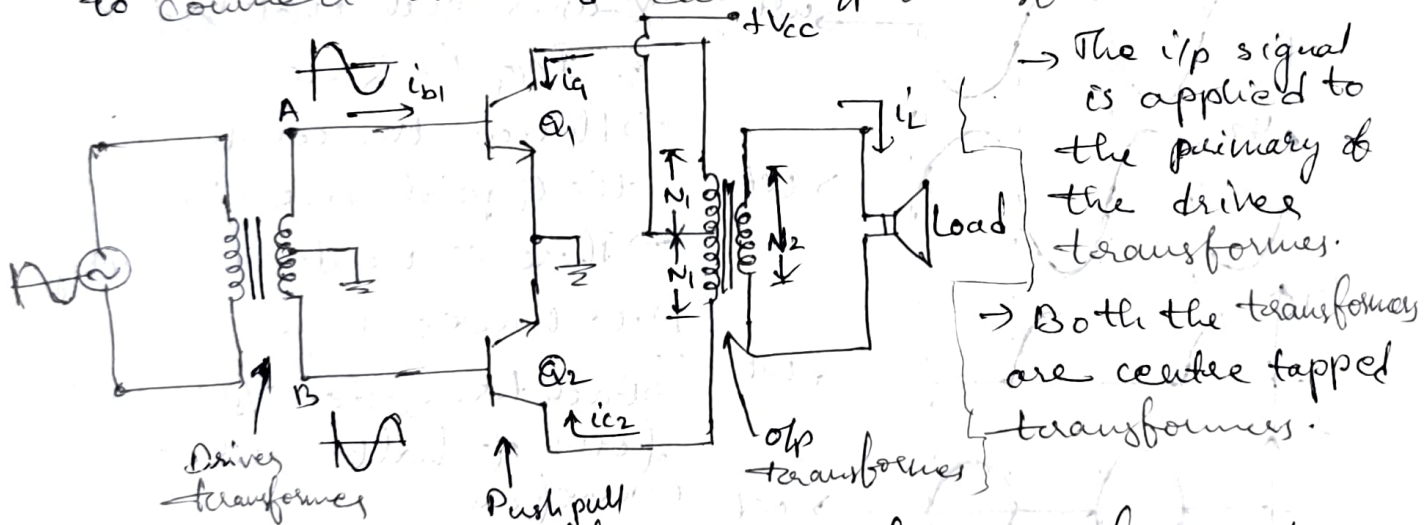 to connect
+Vcc
A
ib1
ic1
Q1
iL
N1
N1
N2
Load
B
Q2
ic2
Driver
transformer
Push pull
o/p
transformer
→ The i/p signal
is applied to
the primary of
the driver
transformer.
→ Both the transformers
are centre tapped
transformers.